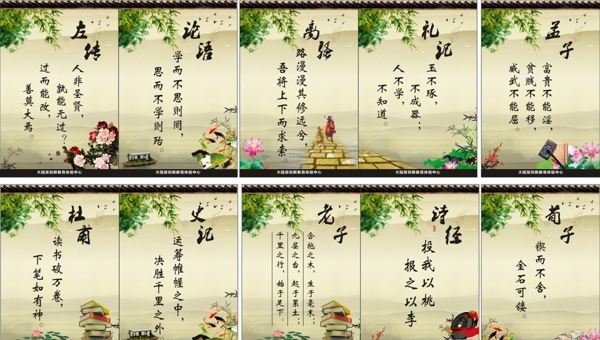 左传
人非圣贤，
孰能无过？
过而能改，
善莫大焉。
论语
学而不思则罔，
思而不学则殆。
离骚
路漫漫其修远兮，
吾将上下而求索
礼记
玉不琢，
不成器，
人不学，
不知道。
孟子
富贵不能淫，
贫贱不能移，
威武不能屈。
大陆架创新教育体验中心
大陆架创新教育体验中心
大陆架创新教育体验中心
杜甫
读书破万卷，
下笔如有神。
史记
运筹帷幄之中，
决胜千里之外
老子
合抱之木，生于毫末；
九层之台，起于累土；
千里之行，始于足下。
诗经
投我以桃
报之以李
荀子
锲而不舍，
金石可镂。